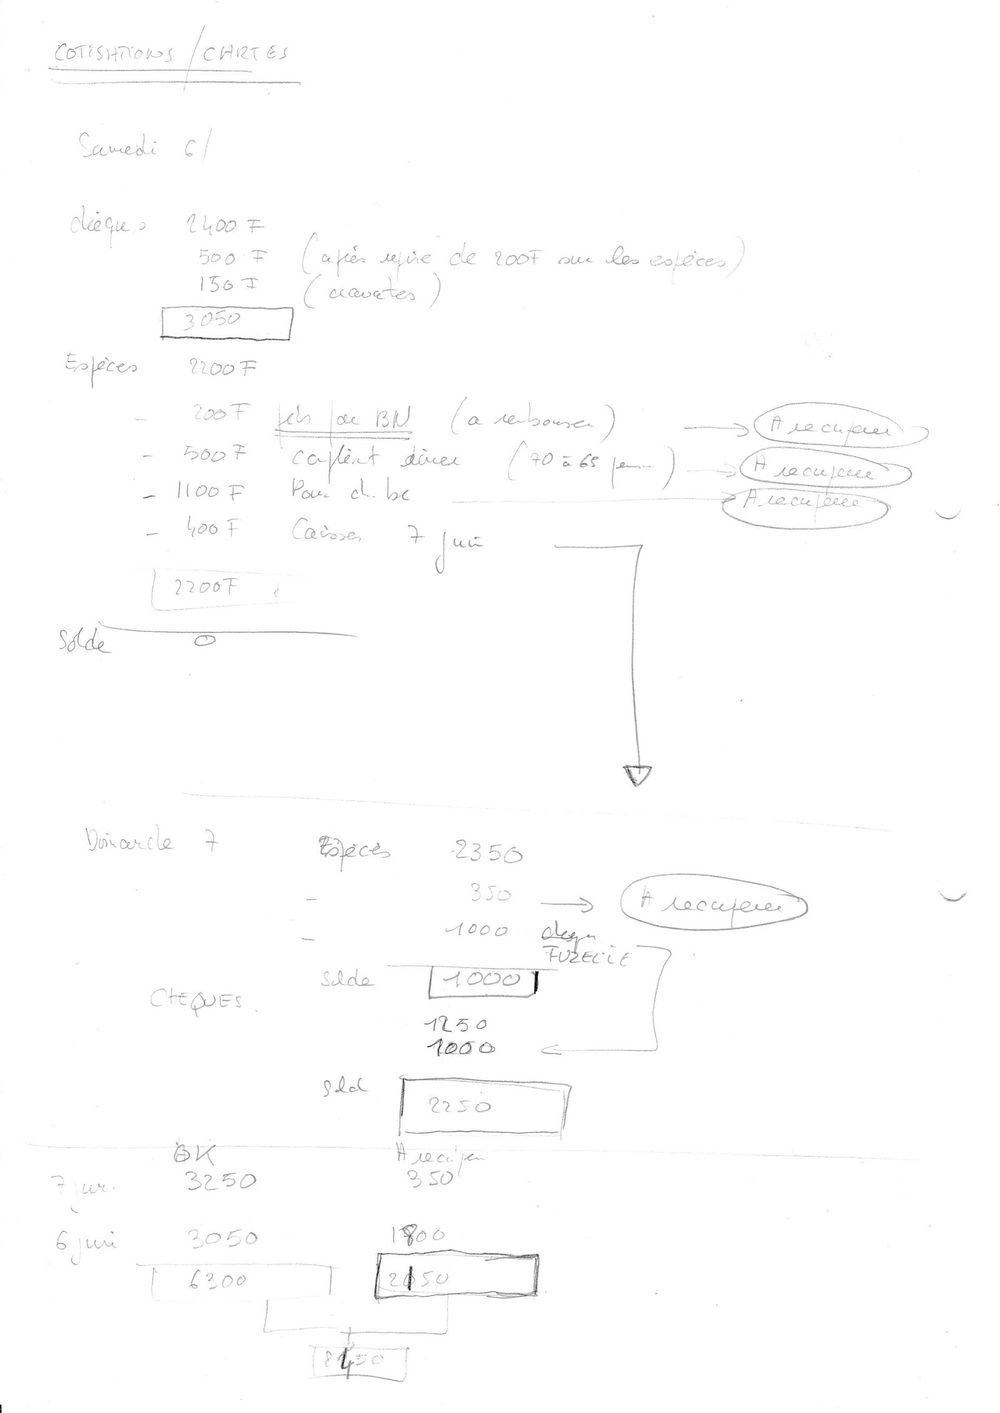 COTISATIONS / CARTES
Samedi 6/
chèques 2400 F
500 F (après reprise de 200F sur les espèces)
150 F (cravates)
3050
Espèces 2200 F
- 200 F BN (a rembourser) → A recuperer
- 500 F complèmt diner (70 à 65 → A recuperer
- 1100 F Pour → A recuperer
- 400 F Caisses 7 juin
2200 F
Solde 0
Dimanche 7 Espèces 2350
- 350 → A recuperer
- 1000
solde 1000
CHEQUES
1250
1000
sold 2250
OK A recuper
7 jui. 3250 350
6 juin 3050 1800
6300 2150
8450